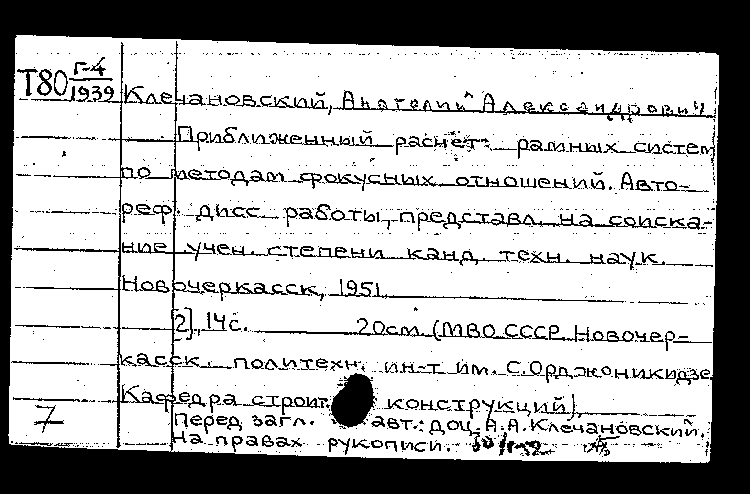 Т80 Г-4/1939
Клечановский, Анатолий Александрович
Приближенный расчет рамных систем
по методам фокусных отношений. Авто-
реф. дисс. работы, представл. на соиска-
ние учен. степени канд. техн. наук.
Новочеркасск, 1951
[2], 14с. 20см. (МВО СССР. Новочер-
касск. политехн. ин-т им. С.Орджоникидзе.
Кафедра строит. конструкций).
Перед загл. авт.: доц. А.А.Клечановский.
7 На правах рукописи.